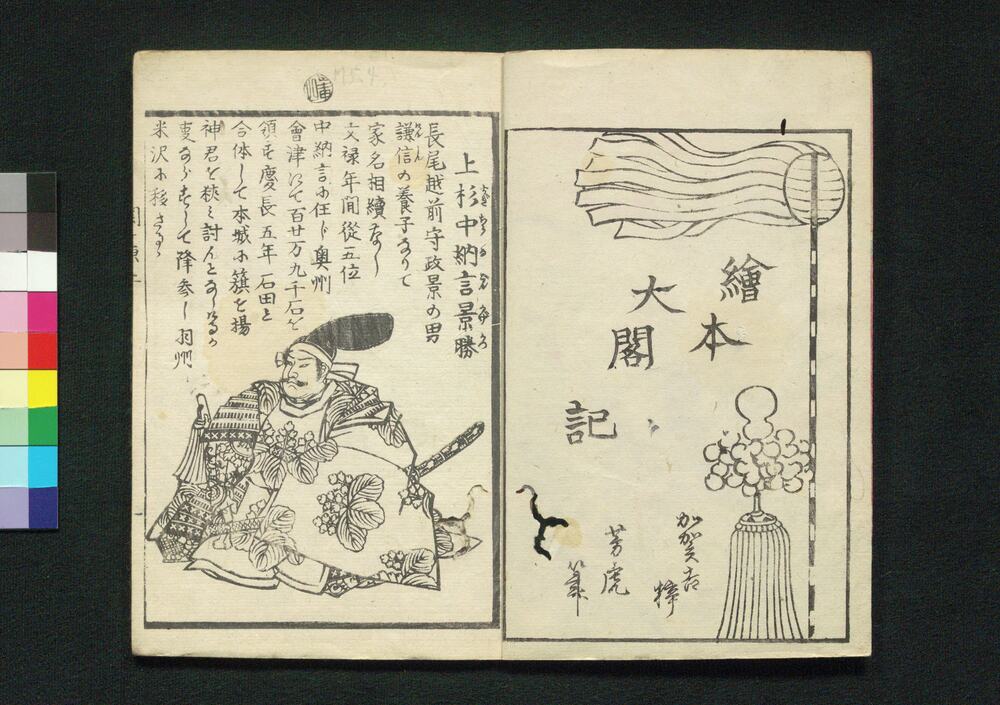 繪本
大閣
記
加賀吉梓
芳虎
筆
上杉中納言景勝
長尾越前守政景の男
謙信の養子なりて
家名相續なし
文禄年間從五位
中納言に任じ奥州
會津にて百廿万九千石を
領す慶長五年石田と
合体して本城に籏を揚
神君を挾み討んと
して降参し羽州
米沢に移さる